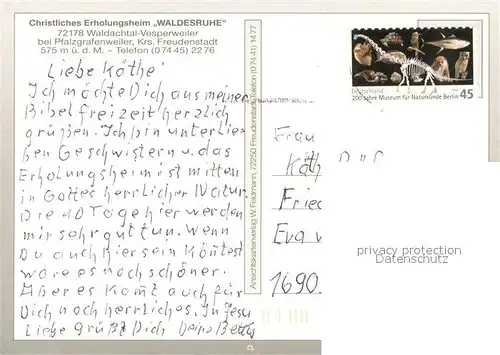 Christliches Erholungsheim „WALDESRUHE"
72178 Waldachtal-Vesperweiler
bei Pfalzgrafenweiler, Krs. Freudenstadt
575 m ü. d. M. – Telefon (0 74 45) 22 76
Liebe Käthe
Ich möchte Dich aus meiner
Bibelfreizeit herzlich
grüßen. Ich bin unter lie-
ben Geschwistern u. das
Erholungsheim ist mitten
in Gottes herrlicher Natur.
Die 10 Tage hier werden
mir sehr gut tun. Wenn
Du auch hier sein könntest
wäre es noch schöner.
Aber es komt auch für
Dich noch herrliches. In Jesu
Liebe grüßt Dich Deine Betty
Ansichtskartenverlag W. Feldmann, 72250 Freudenstadt, Telefon (0 74 41) 14 77
Deutschland
200 Jahre Museum für Naturkunde Berlin
45
Frau
Käth
Fried
Eva
1690
privacy protection
Datenschutz